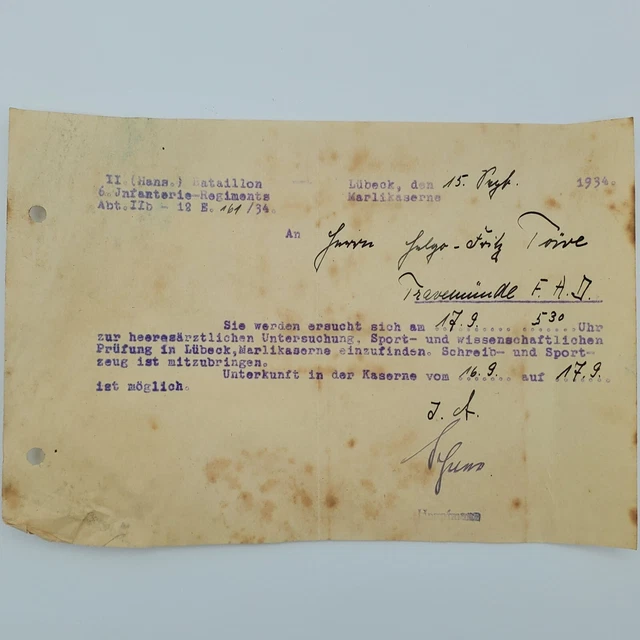 II.(Hans.) Bataillon
6. Infanterie-Regiments
Abt.IIb - 12 E. 161/34.
Lübeck, den 15. Sept. 1934.
Marlikaserne
An Herrn Helgo-Fritz
Travemünde F. A. D.
Sie werden ersucht sich am 17.9. 530 Uhr
zur heeresärztlichen Untersuchung, Sport- und wissenschaftlichen
Prüfung in Lübeck,Marlikaserne einzufinden. Schreib- und Sport-
zeug ist mitzubringen.
Unterkunft in der Kaserne vom 16.9. auf 17.9.
ist möglich.
I. A.
Hauptmann